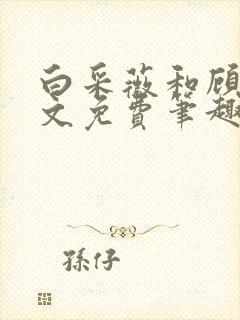 白采薇和顾
文免费笔趣
孫仔